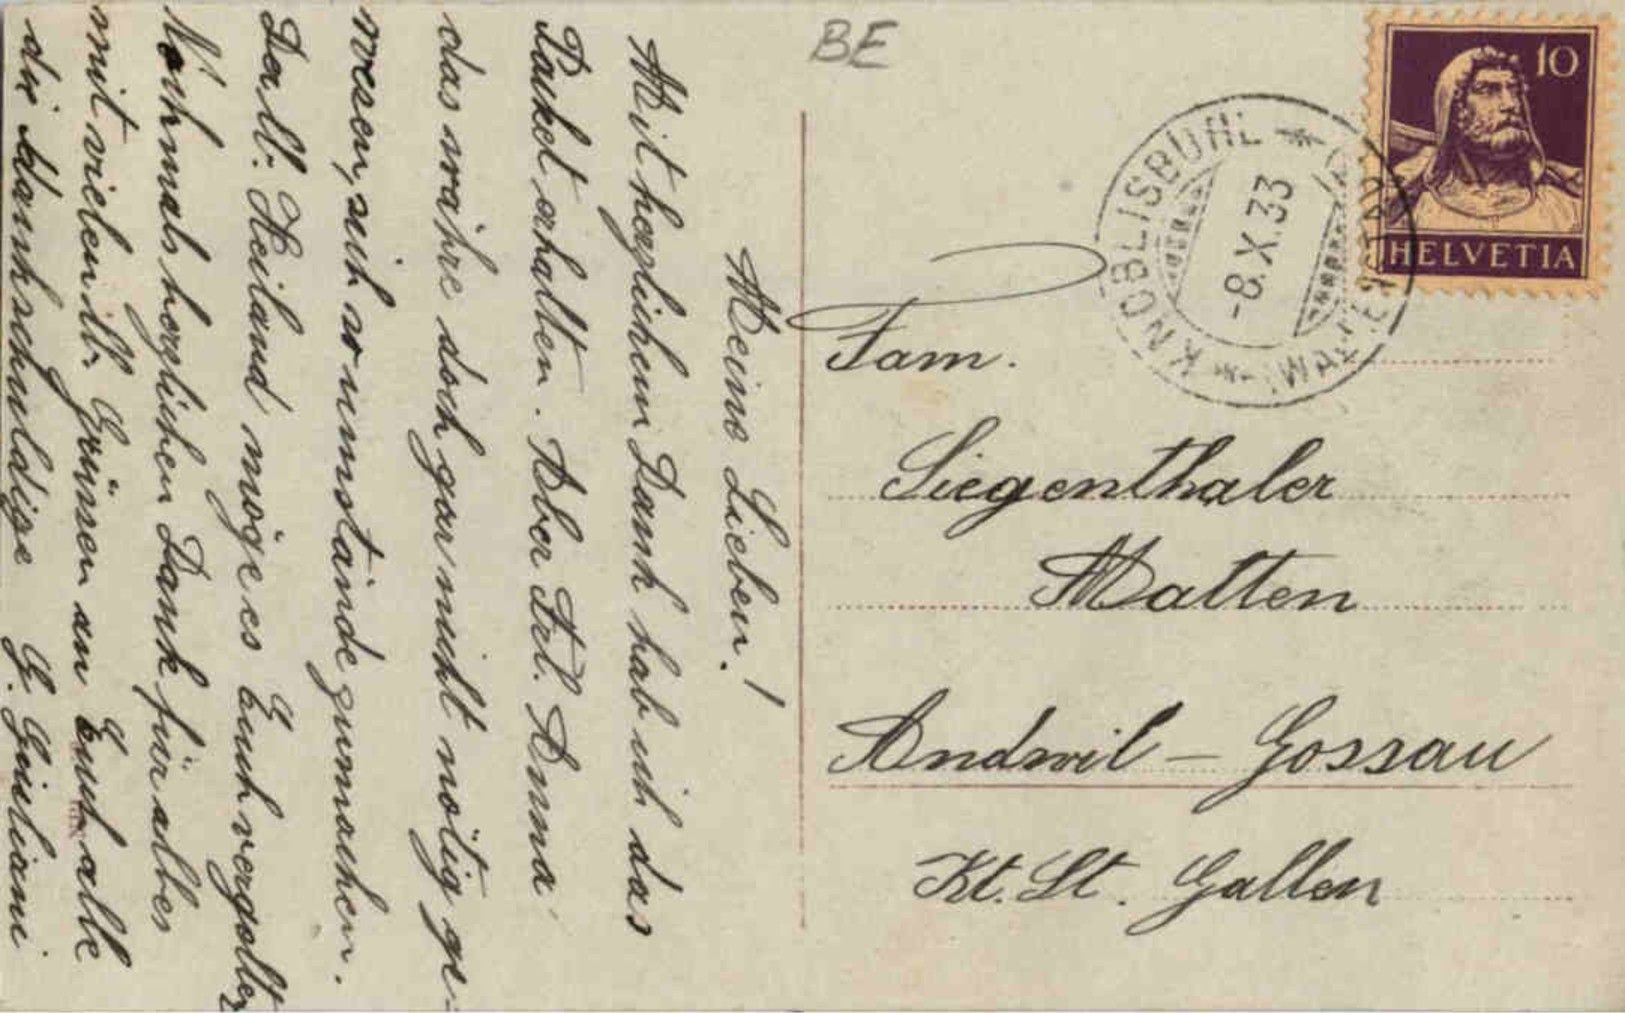 Meine Lieben!
Mit herzlichem Dank hab ich das
Packet erhalten. Aber Frl. Anna
das wäre doch gar nicht nötig ge-
wesen, sich so umstände zumachen.
Der lb. Heiland möge es Euch vergelten
Nochmals herzlichen Dank für alles
mit vielen lb. Grüssen an Euch alle
die dankschuldige G. Giuliani
BE
10
HELVETIA
KNOBLISBÜHL
-8.X.33
Fam.
Siegenthaler
Matten
Andwil – Gossau
Kt. St. Gallen